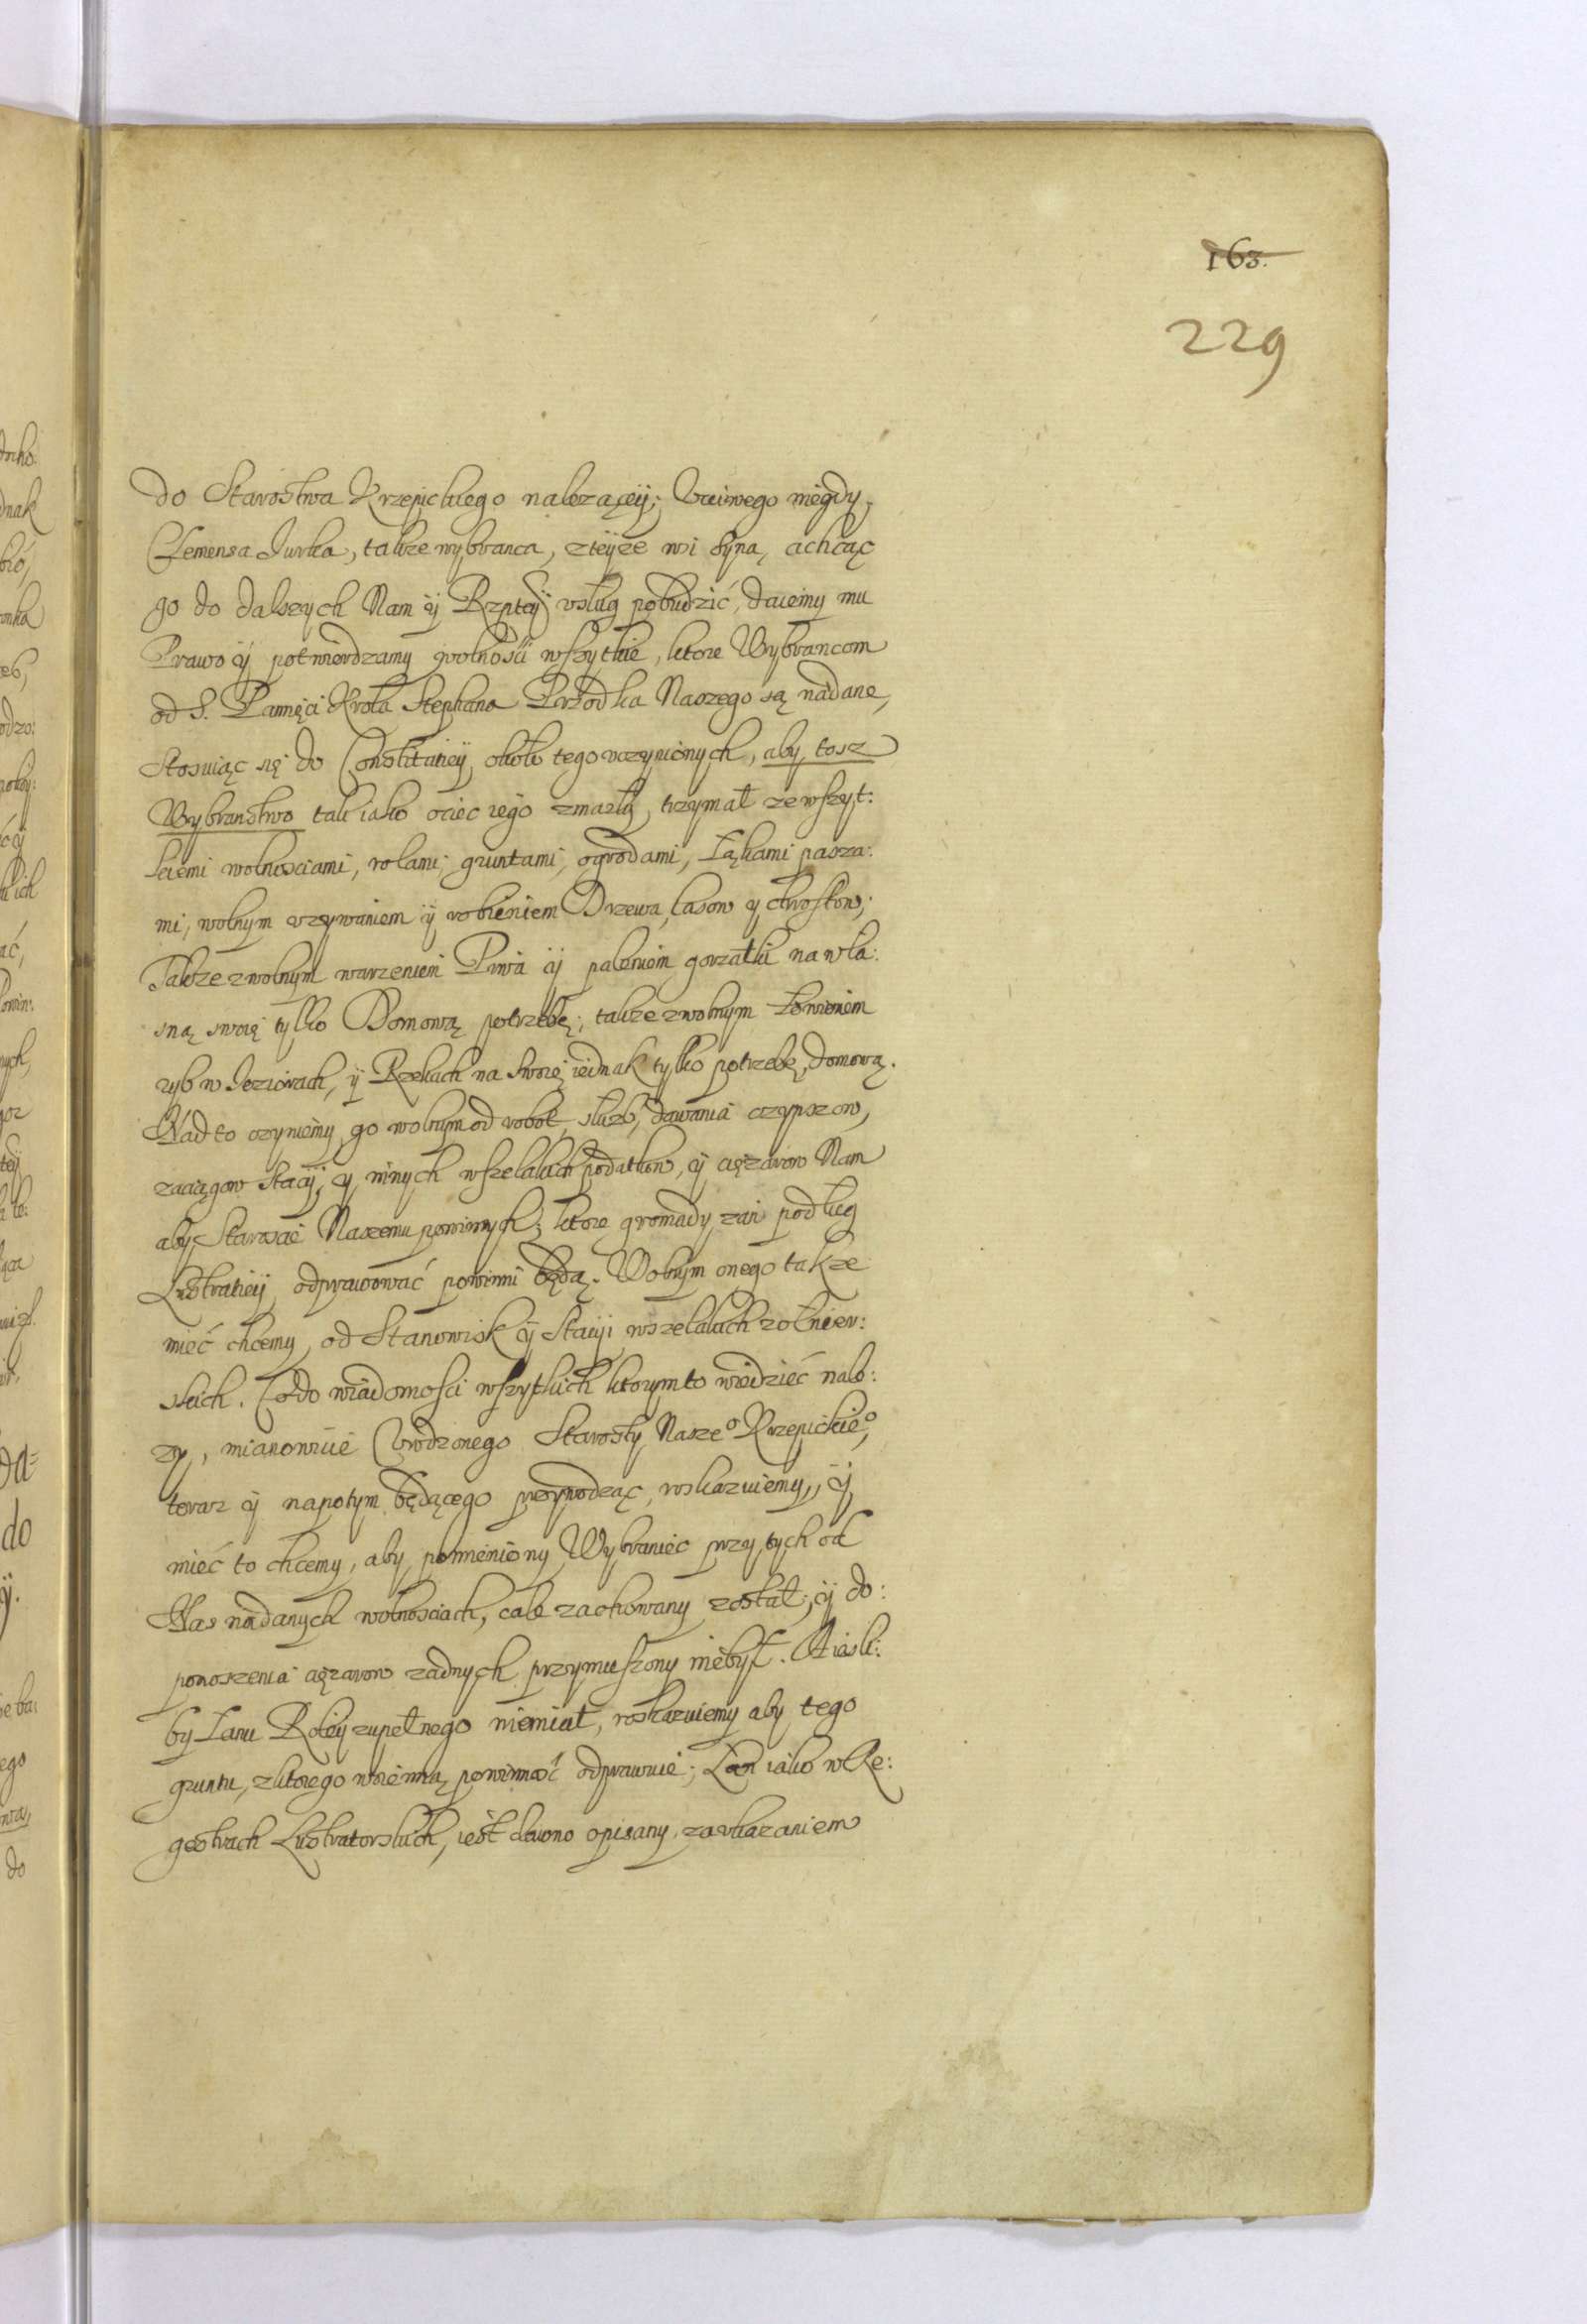 163.
229
do Starostwa Krzepickiego nalezącÿ; Vcciwego niegdy,
Clemensa Jurka, takze wybranca, z teÿze wsi syna, a chcąc
go do dalszych Nam ÿ Rzptey vsług pobudzić, daiemy mu
Prawo ÿ potwierdzamy wolnosci wszytkie, ktore Wybrancom
od S. Pamięci Krola Stephana Przodka Naszego są nadane,
Stosuiąc się do Constitutieÿ około tego vczynionych, aby tosz
Wybranstwo tak iako ociec iego zmarły trzymał ze wszyt:
kiemi wolnosciami, rolami, gruntami, ogrodami, Łąkami pasza:
mi, wolnym vzywaniem ÿ robieniem Drzewa, lasow y chrostow;
Takze z wolnym warzeniem Piwa ÿ paleniem gorzałki na wła:
sną swoię tylko Domową potrzebę; takze z wolnym Łowieniem
ryb w Jeziorach, ÿ Rzekach na swoię iednak tylko potrzebę domową.
Nad to czyniemy go wolnym od robot, służb, dawania czynszow,
zaciągow Stacÿ, y innych wszelakich podatkow, ÿ cięzarow Nam
aby Staroscie Naszemu powinnych; ktore gromady zan podług
Lustratieÿ odprawować powinni będą. Wolnym onego takze
mieć chcemy, od Stanowisk ÿ Stacyi wszelakich zołnier:
skich. Co do wiadomosci wszytkich ktorym to wiedzieć nale:
zy, mianowicie Vrodzonego Starosty Nasze° Krzepickie°,
teraz ÿ napotym będącego przywodząc, roskazuiemy, ÿ
mieć to chcemy, aby pomieniony Wybraniec przy tych od
Nas nadanych wolnosciach, cale zachowany został, ÿ do:
ponoszenia cięzarow zadnych przymuszony niebył. A iesli:
by Łanu Roleÿ zupełnego niemiał, roskazuiemy aby tego
gruntu, z ktorego woienną powinność odprawuie, Łan iako w Re:
gestrach Lustratorskich, iest dawno opisany, za vkazaniem